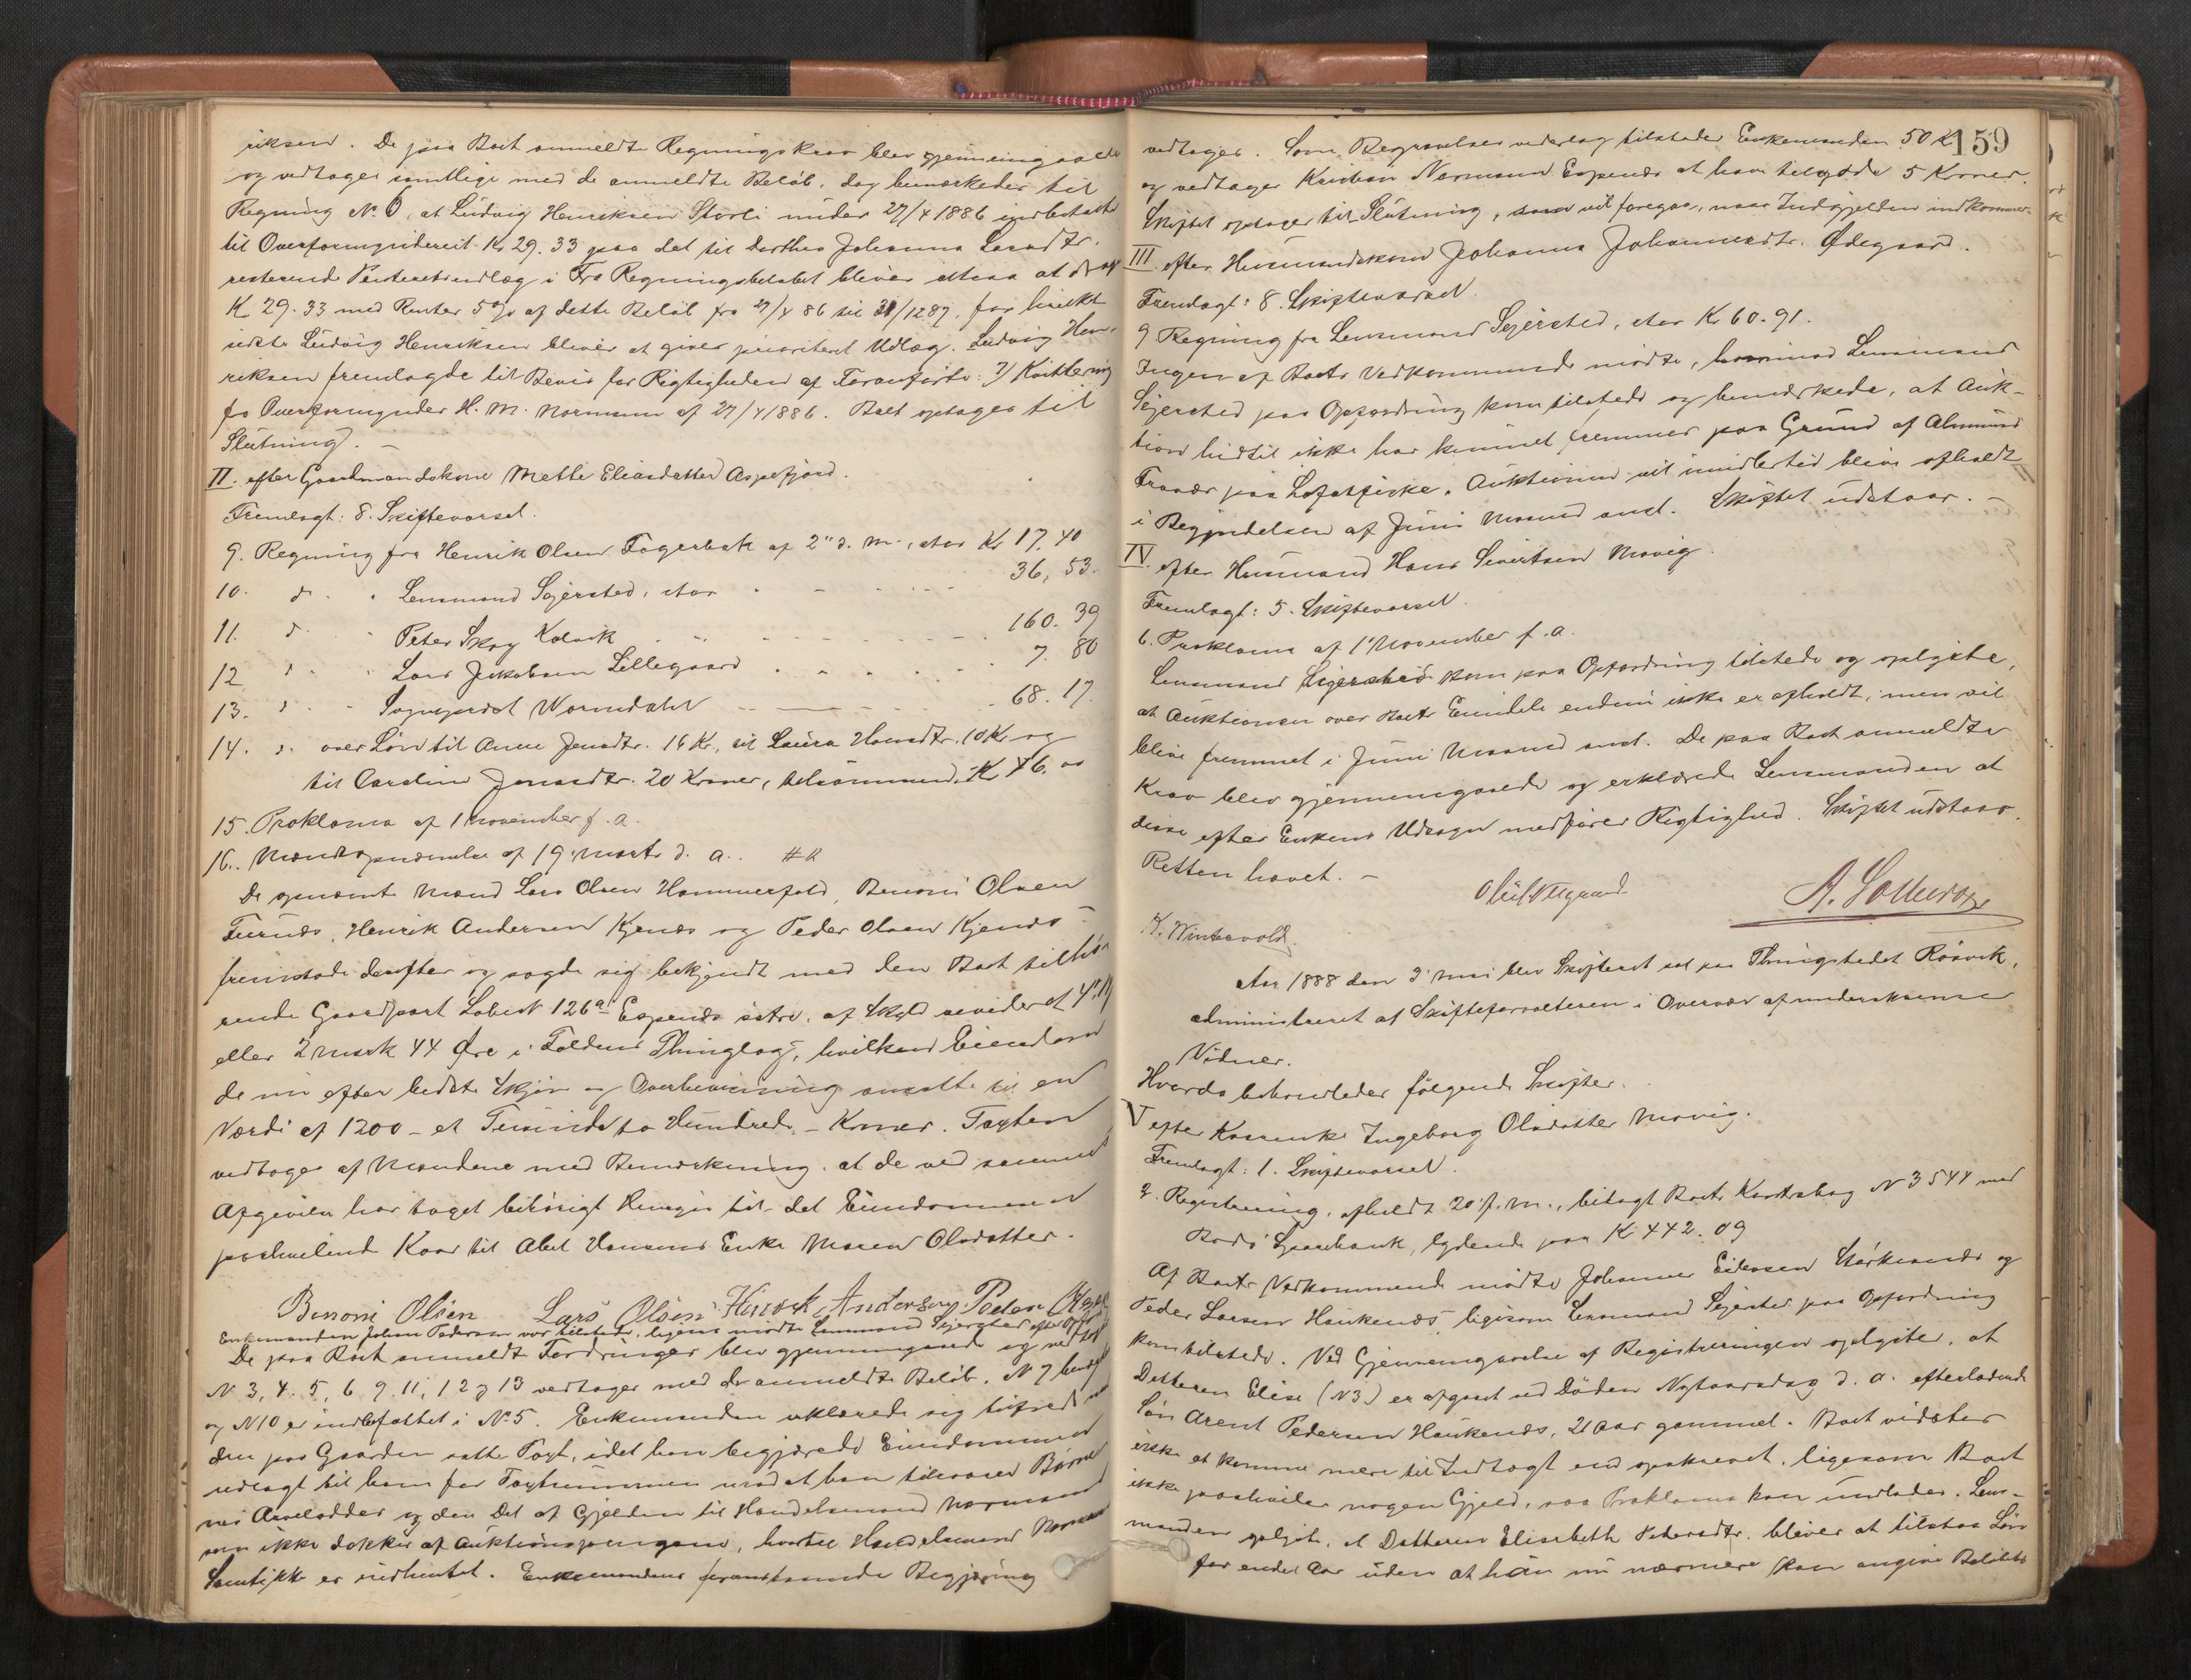 riksen. De paa Boet anmeldte Regningskrav blev gjennemgaaede
og vedtoges samtlige med de anmeldte Beløb, dog bemærkedes til
Regning No. 6, at Ludvig Henriksen Storli under 27/4 1886 indbetalte
til Overformynderiet Kr 29.33 paa det til Dorthea Johanna Larsdtr.
resterende i Fra Regningsbeløbet bliver altsaa at drage
Kr 29.33 med Renter 5% af dette Beløb fra 27/4 86 til 31/12 87, for hvilket
sidste Ludvig Henriksen bliver at gives prioriteret Udlæg. Ludvig Hen-
riksen fremlagde til Bevis for Rigtigheden af Foranførte: 7/ Kvittering
fra Overformynder H. M. Normann af 27/4 1886. Boet optages til
Slutning. –
II. efter Gaardmandskone Mette Eliasdatter Aspefjord.
Fremlagt: 8. Skiftevarsel.
9. Regning fra Henrik Olsen Fagerbak af 2 d. M., stor Kr 17,40
10. d. " Lensmand Sejersted, stor 36,53.
11. d. " Peter Skog Kolvik 160.39
12 d. " Lars Jakobsen Lillegaard 7.80
13. d. " Sogneprest Wormdahl 68.17.
14. d. over Løn til Anne Jensdtr. 16 Kr, til Laura Hansdtr. 10 Kr og
til Caroline Jensdtr. 20 Kroner, tilsammen Kr 46.00
15. Proklama af 1 November f. a.
16. Mændsopnævnelse af 19 Marts d. a.
De opnævnte Mænd Lars Olsen Hammerfald, Benoni Olsen
Furnes, Henrik Andersen Kjenæs og Peder Olsen Kjenæs
fremstode derefter og sagde sig bekjendt med den Boet tilhø-
rende Gaardpart Løbeno 126a Espenæs østre, af Skyld revideret
eller 2 Mark 44 Øre i Foldens Thinglag, hvilken Eiendom
de nu efter bedste Skjøn og Overbevisning ansatte til en
Værdi af 1200 – et Tusinde to Hundrede – Kroner. Taxten
vedtoges af Mændene med Bemærkning, at de ved sammes
Afgivelse har taget behørigt Hensyn til det Eiendommen
paahvilende Kaar til Abel Hansens Enke Maren Olsdatter.
Benoni Olsen Lars Olsen Hinrik Andersen Peder Olsen
Enkemanden Johan Pedersen var tilstede, ligesaa mødte Lensmand Sejersted efter Opf.
De paa Boet anmeldte Fordringer blev gjennemgaaede og
No. 3, 4, 5, 6, 9, 11, 12 og 13 vedtoges med de anmeldte Beløb. No 7
og No 10 er indbefattet i No 5. Enkemanden erklærede sig tilfreds med
den paa Gaarden satte Taxt, idet han begjærede Eiendommen
udlagt til ham for Taxtsummen mod at han tilsvarer Børne-
nes Arvelodder og den Del af Gjælden til Handelsmand Normann
som ikke dækkes af Auktionspengene, hvortil Handelsmand Normanns
Samtykke er indhentet. Enkemandens foranstaaende Begjæring
159
vedtoges. Som Begravelsesvederlag tilstodes Enkemanden 50 Kr
og vedtoges Kristian Normann Espenæs at have tilgode 5 Kroner.
Skiftet optages til Slutning, som vil foregaa, naar Indgjælden indkommer.
III. efter Husmandskone Johanna Johannesdtr. Ødegaard.
Fremlagt: 8. Skiftevarsel.
9 Regning fra Lensmand Sejersted, stor Kr 60.91.
Ingen af Boets Vedkommende mødte, hvorimod Lensmand
Sejersted paa Opfordring kom tilstede og bemærkede, at Auk-
tion hidtil ikke har kunnet fremmes paa Grund af Almuens
Fravær paa Lofotfiske. Auktionen vil imidlertid blive afholdt
i Begyndelsen af Juni Maaned anst. Skiftet udstaar. –
IV. efter Husmand Hans Sivertsen Movig.
Fremlagt: 5. Skiftevarsel.
6. Proklama af 1 November f. a.
Lensmand Sejersted kom paa Opfordring tilstede og oplyste,
at Auktionen over Boets Eiendele endnu ikke er afholdt, men vil
blive fremmet i Juni Maaned anst. De paa Boet anmeldte
Krav blev gjennemgaaede og erklærede Lensmanden at
disse efter Enkens Udsagn medfører Rigtighed. Skiftet udstaar.
Retten hævet. –
K. Wintervold.
Aar 1888 den 3 Mai blev Skifteret sat paa Thingstedet Røsvik,
administreret af Skifteforvalteren i Overvær af underskrevne
Vidner.
Hvorda behandledes følgende Skifter.
V efter Kaarenke Ingeborg Olsdatter Movig.
Fremlagt: 1. Skiftevarsel.
2. Registrering, afholdt 20 f. M., bilagt Boets Kontrabog No 3544 med
Bodø Sparebank, lydende paa Kr 442.09
Af Boets Vedkommende mødte Johannes Eidesen og
Peder Larsen Haukenæs, ligesom Lensmand Sejersted paa Opfordring
kom tilstede. Ved Gjennemgaaelse af Registreringen oplystes, at
Datteren Elise (No 3) er afgaaet ved Døden Nytaarsdag d. a. efterladende
Søn Arent Pedersen Haukenæs, 21 Aar gammel. Boet vidstes
ikke at komme mere til Indtægt end opskrevet, ligesom Boet
ikke paahviler nogen Gjæld, saa Proklama kan undlades. Lens-
manden oplyste, at Datteren Elisabeth Petersdtr. bliver at tilstaa Løn
for endel Aar uden at han nu nærmere kan angive Beløbets